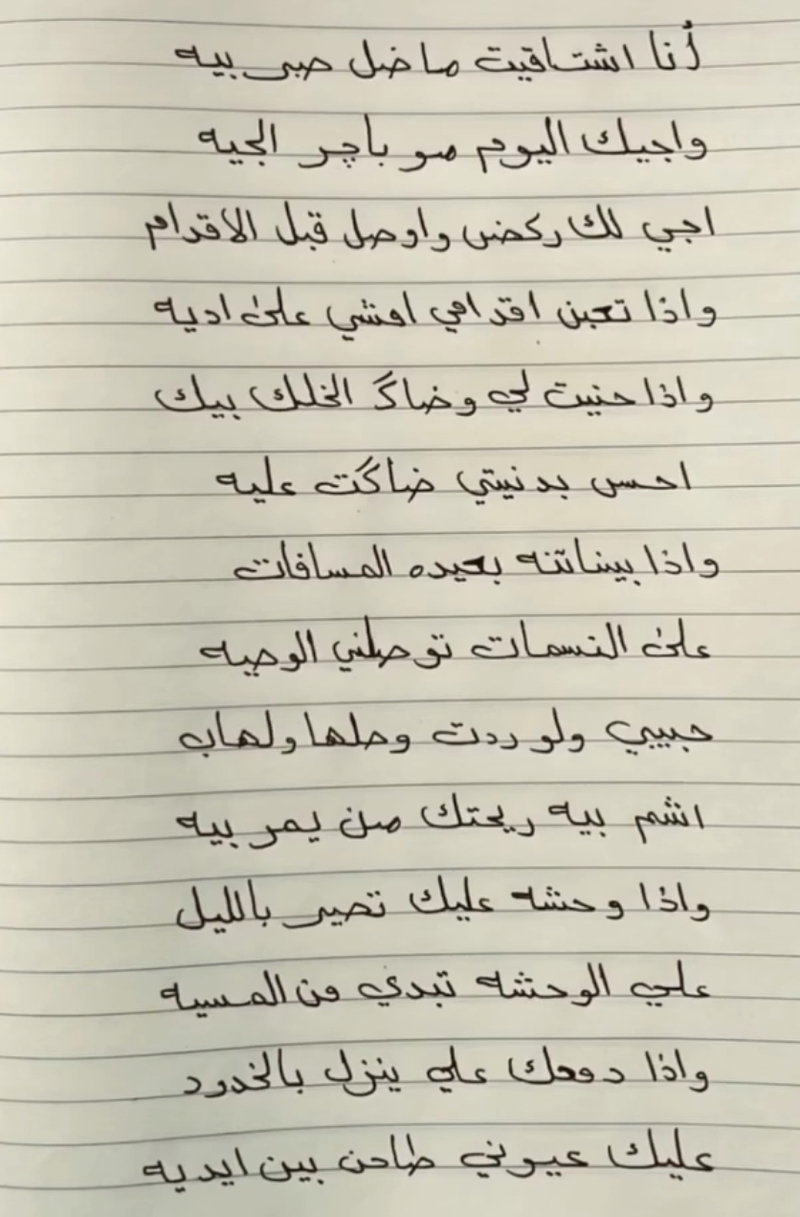 أنا اشتاقيت ماضل صبر بيه
واجيك اليوم مو باچر الجيه
اجي لك ركض واوصل قبل الاقدام
واذا تعبن اقدامي امشي على اديه
واذا حنيت لي وضاگ الخلك بيك
احس بدنيتي ضاگت عليه
واذا بيناتنه بعيده المسافات
على النسمات توصلني الوصيه
حبيبي ولو ردت وصلها ولهاب
اشم بيه ريحتك من يمر بيه
واذا وحشه عليك تصير بالليل
علي الوحشه تبدي من المسيه
واذا دمعك علي ينزل بالخدود
عليك عيوني طاحن بين ايديه